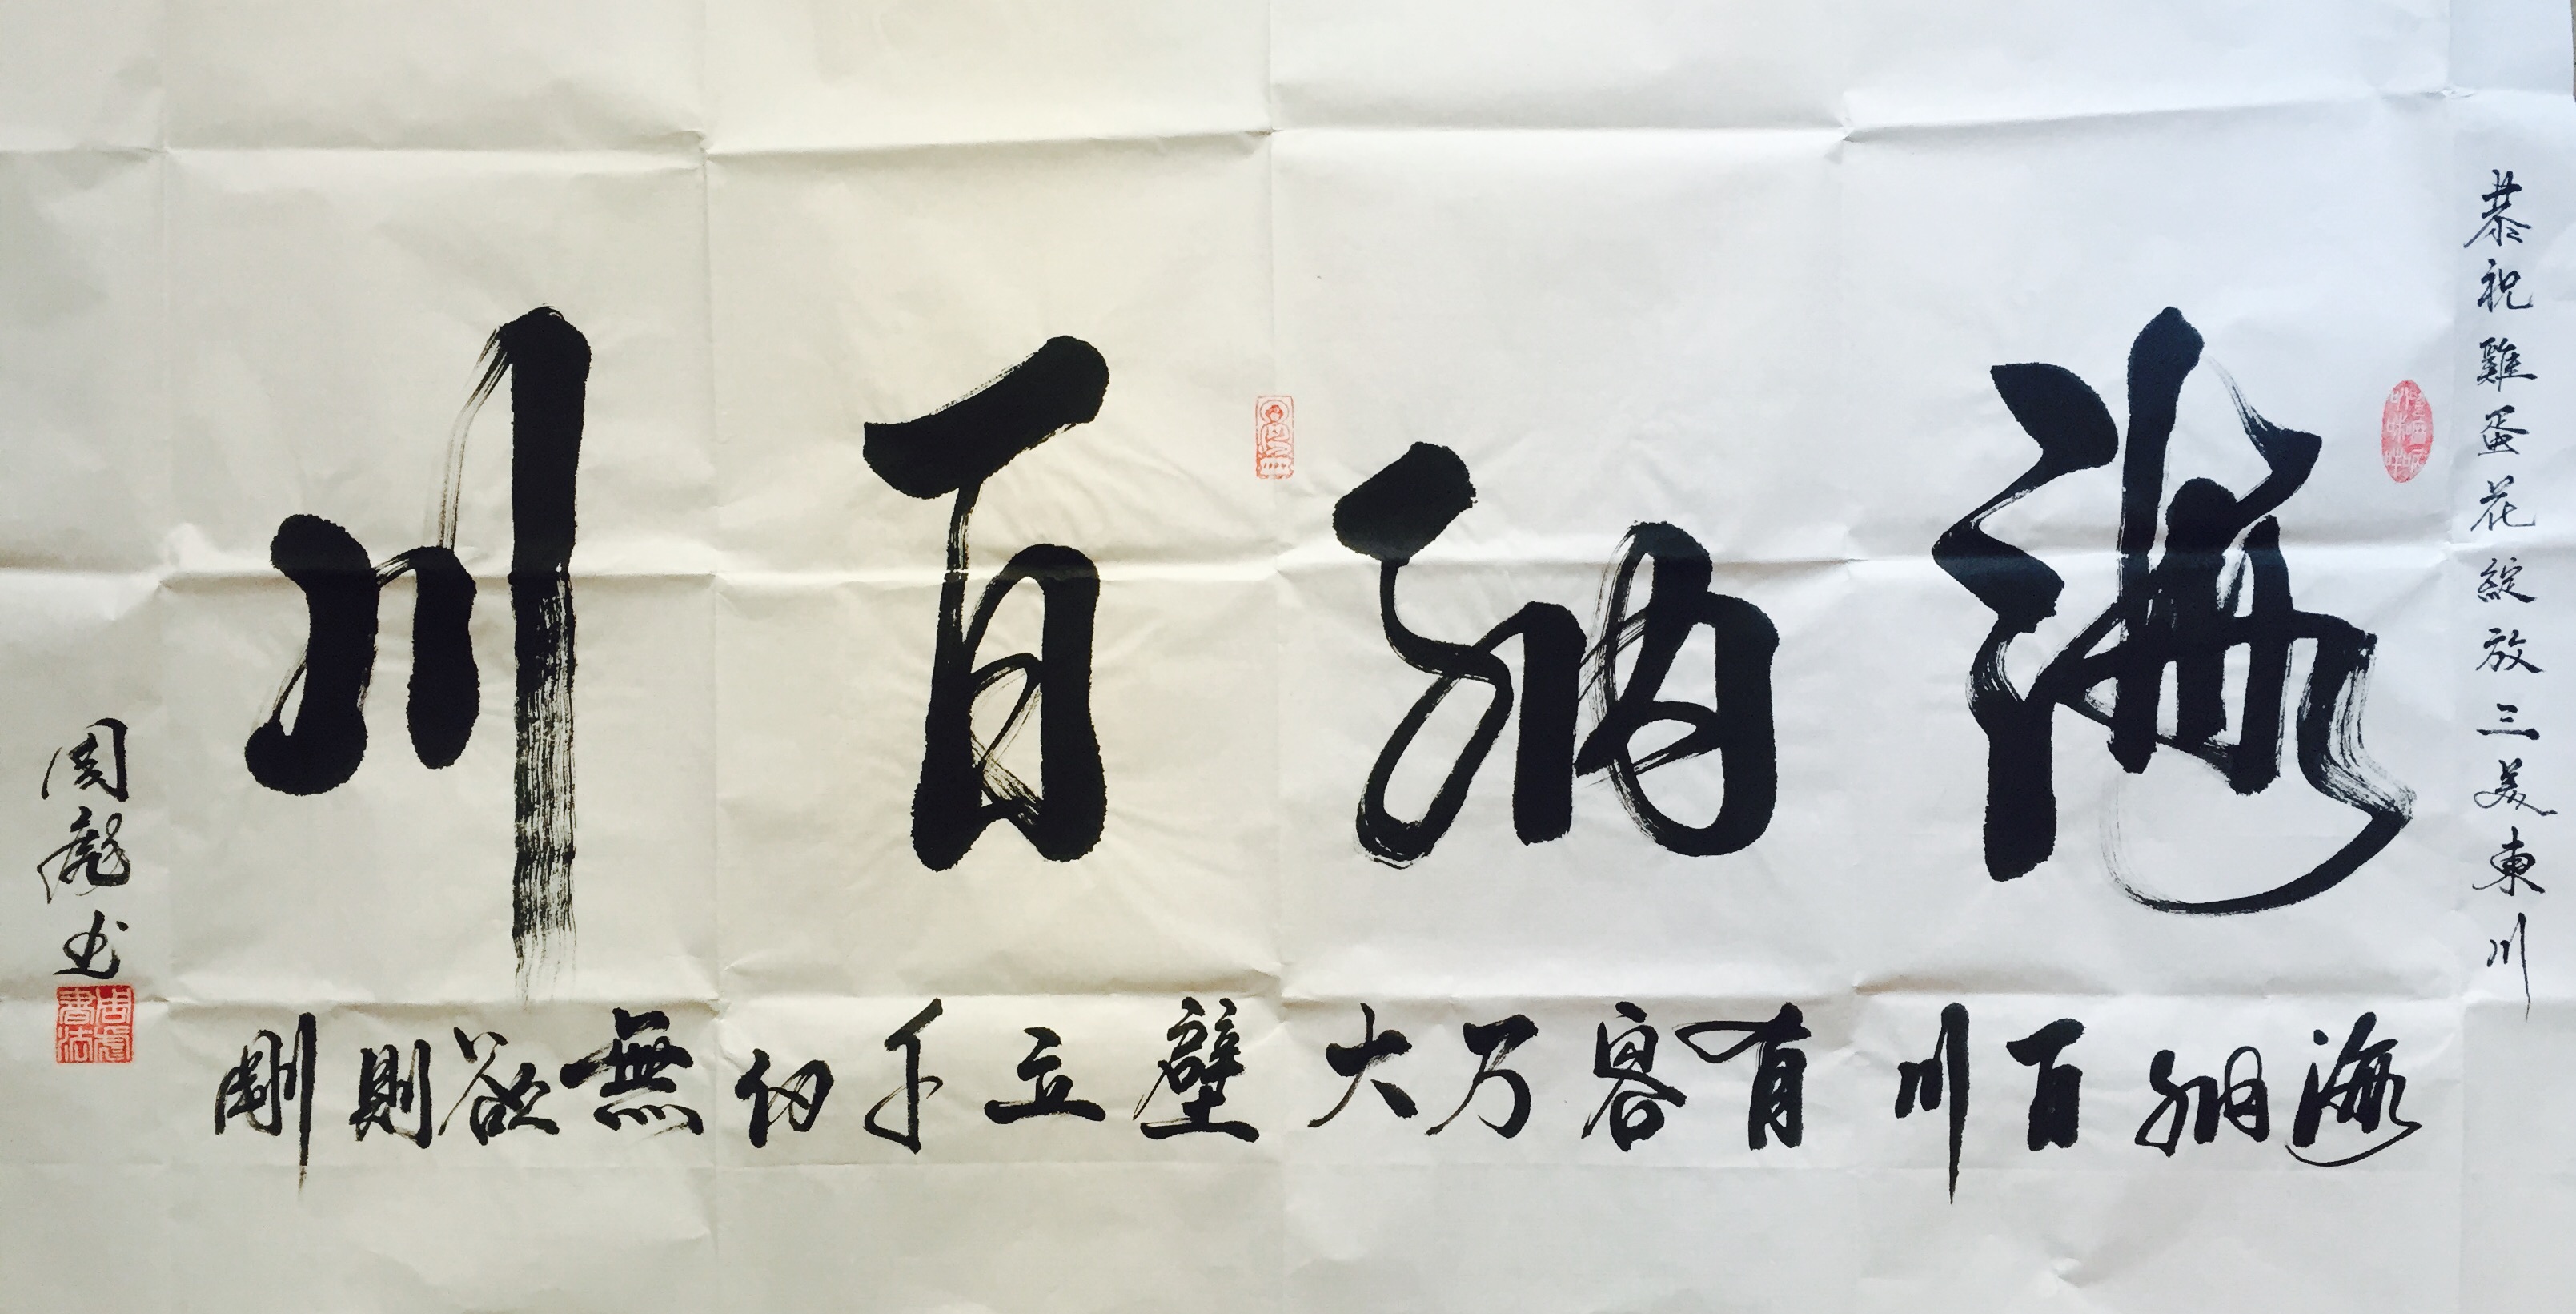 恭祝雞蛋花綻放三美東川
海納百川
海納百川有容乃大壁立千仞無欲則剛
周彪书